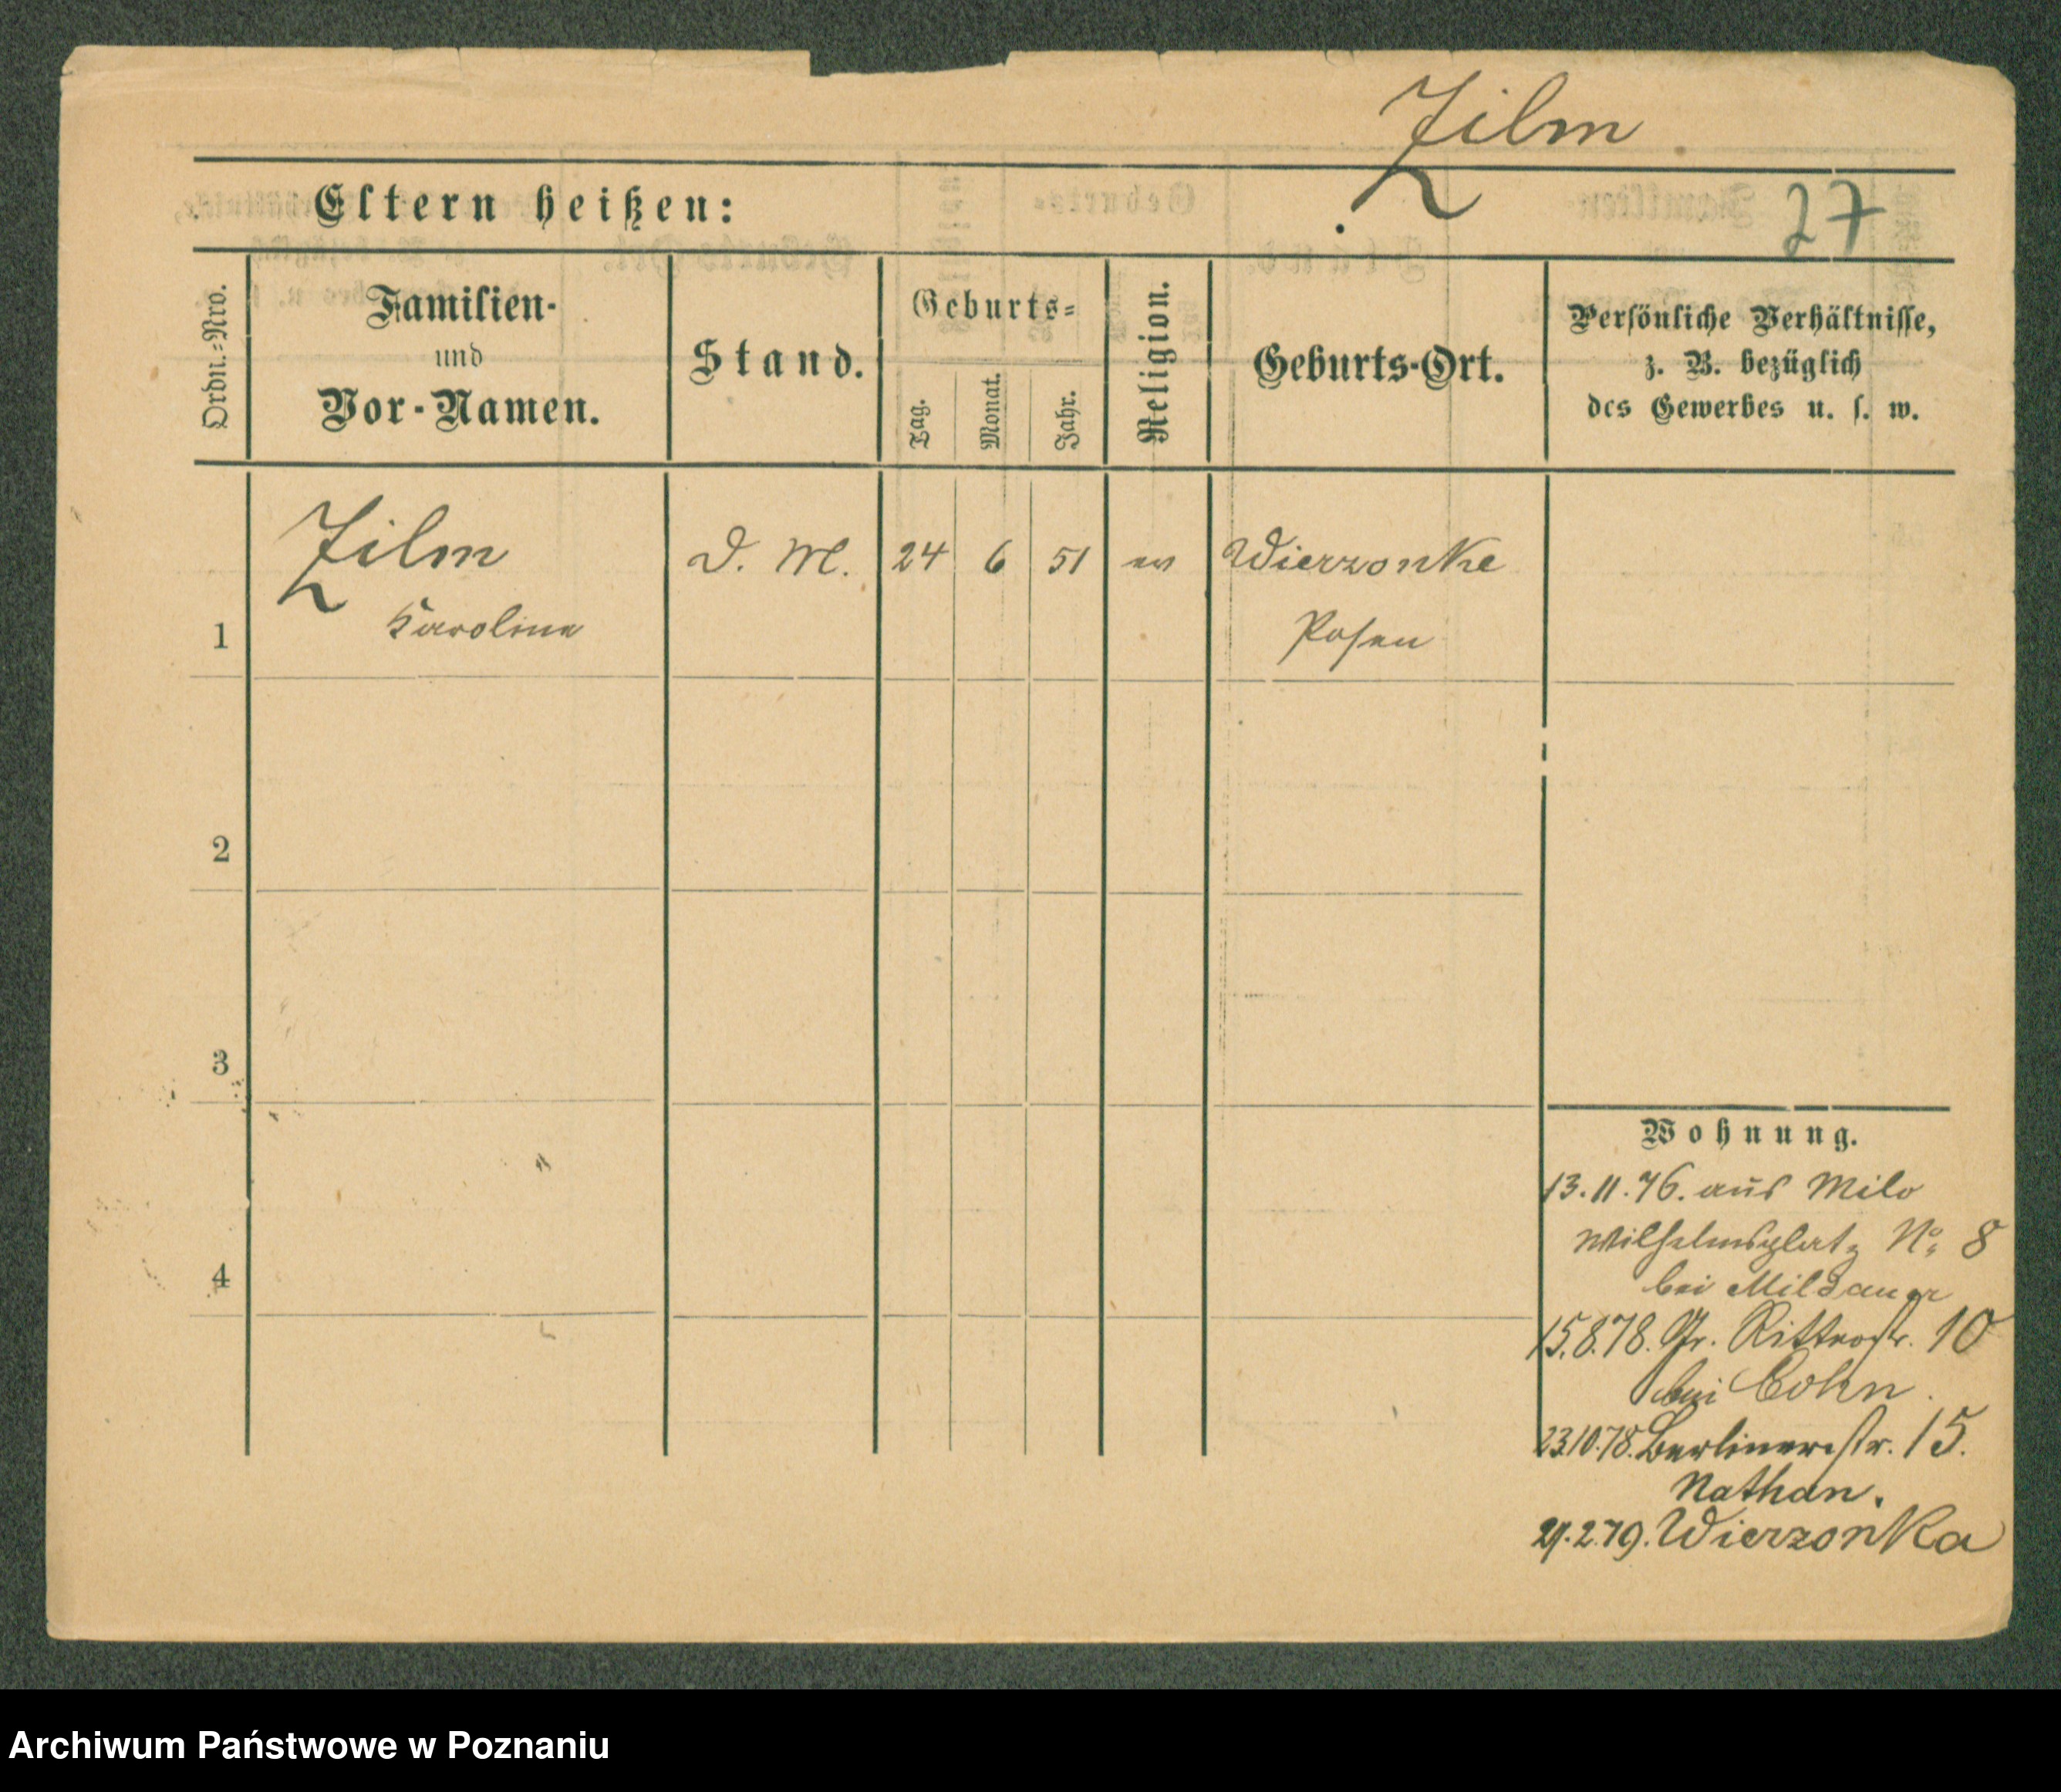 Zilm
Eltern heißen:
27
Ordn.=Nro.
Familien-
und
Vor-Namen.
Stand.
Geburts=
Tag.
Monat.
Jahr.
Religion.
Geburts-Ort.
Persönliche Verhältnisse,
z. B. bezüglich
des Gewerbes u. s. w.
1
Zilm
Karoline
D. M.
24
6
51
ev
Wierzonke
Posen
2
3
4
Wohnung.
13.11.76. aus Milo
Wilhelmsplatz No. 8
bei Mildauer
15.8.78. Gr. Ritterstr. 10
bei Cohn.
23.10.78. Berlinerstr. 15.
Nathan.
21.2.79. Wierzonka
Archiwum Państwowe w Poznaniu